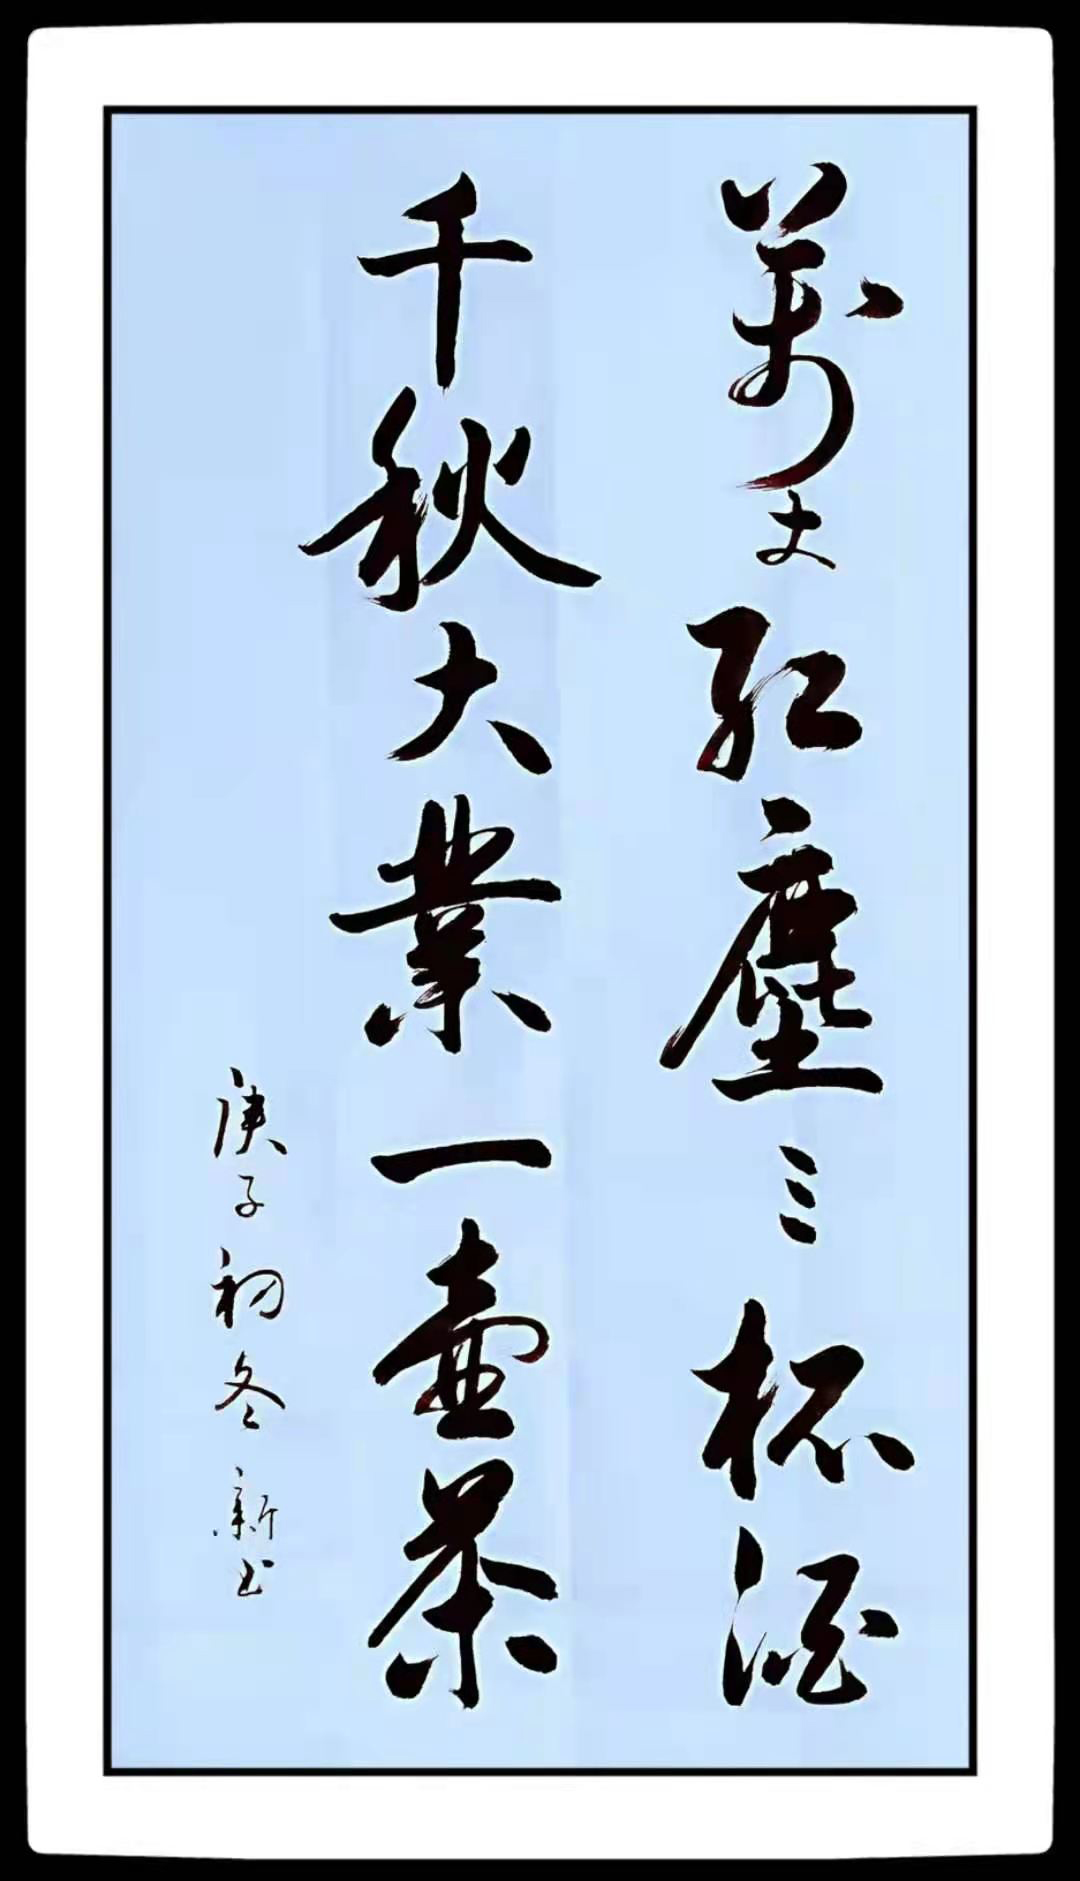 萬丈红塵三杯酒
千秋大業一壺茶
庚子初冬新书